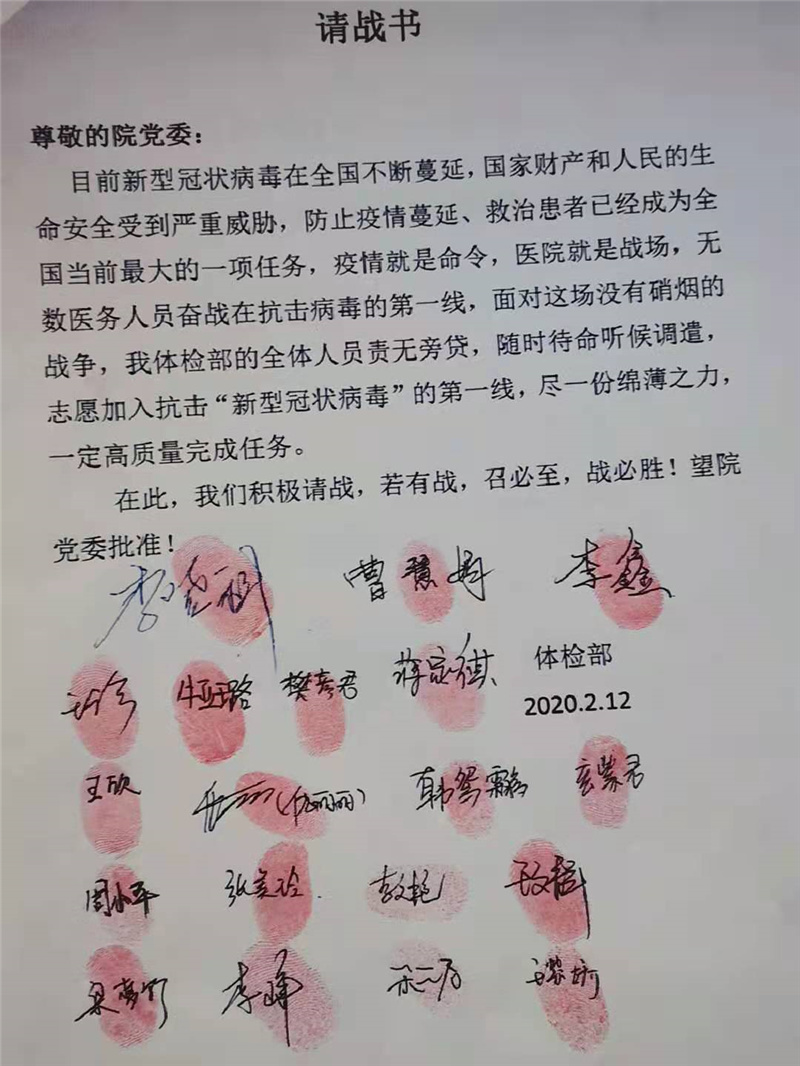 请战书
尊敬的院党委：
目前新型冠状病毒在全国不断蔓延，国家财产和人民的生
命安全受到严重威胁，防止疫情蔓延、救治患者已经成为全
国当前最大的一项任务，疫情就是命令，医院就是战场，无
数医务人员奋战在抗击病毒的第一线，面对这场没有硝烟的
战争，我体检部的全体人员责无旁贷，随时待命听候调遣，
志愿加入抗击“新型冠状病毒”的第一线，尽一份绵薄之力，
一定高质量完成任务。
在此，我们积极请战，若有战，召必至，战必胜！望院
党委批准！
曹慧娟 李鑫
牛亚璐 樊彦君 蒋家祺 体检部
2020.2.12
王欣 (仇丽丽) 韩鸳鸯
周小平 张美玲 彭艳
李峰